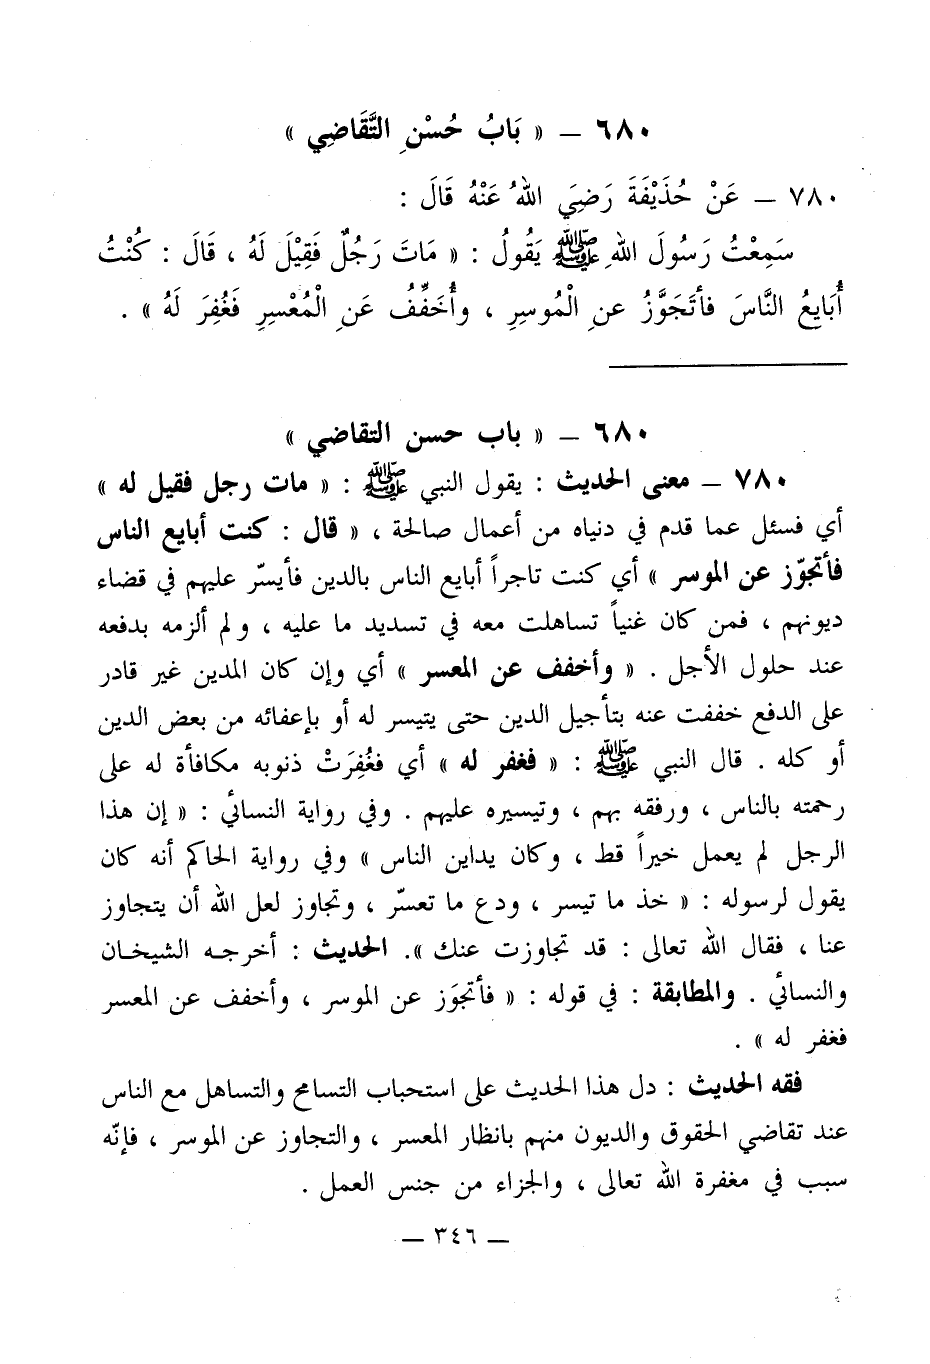 ٦٨٠ – « بَابُ حُسْنِ التَّقَاضِي »
٧٨٠ – عَنْ حُذَيْفَةَ رَضِيَ اللهُ عَنْهُ قَالَ :
سَمِعْتُ رَسُولَ اللهِ ﷺ يَقُولُ : « مَاتَ رَجُلٌ فَقِيْلَ لَهُ ، قَالَ : كُنْتُ
أُبَايِعُ النَّاسَ فأَتَجَوَّزُ عنِ الْمُوسِرِ ، وأُخَفِّفُ عَنِ الْمُعْسِرِ فَغُفِرَ لَهُ » .
٦٨٠ – « باب حسن التقاضي »
٧٨٠ – معنى الحديث : يقول النبي ﷺ : « مات رجل فقيل له »
أي فسئل عما قدم في دنياه من أعمال صالحة ، « قال : كنت أبايع الناس
فأتجوّز عن الموسر » أي كنت تاجراً أبايع الناس بالدين فأيسّر عليهم في قضاء
ديونهم ، فمن كان غنياً تساهلت معه في تسديد ما عليه ، ولم ألزمه بدفعه
عند حلول الأجل . « وأخفف عن المعسر » أي وإن كان المدين غير قادر
على الدفع خففت عنه بتأجيل الدين حتى يتيسر له أو بإعفائه من بعض الدين
أو كله . قال النبي ﷺ : « فغفر له » أي فغُفِرَتْ ذنوبه مكافأة له على
رحمته بالناس ، ورفقه بهم ، وتيسيره عليهم . وفي رواية النسائي : « إن هذا
الرجل لم يعمل خيراً قط ، وكان يداين الناس » وفي رواية الحاكم أنه كان
يقول لرسوله : « خذ ما تيسر ، ودع ما تعسّر ، وتجاوز لعل الله أن يتجاوز
عنا ، فقال الله تعالى : قد تجاوزت عنك ». الحديث : أخرجه الشيخان
والنسائي . والمطابقة : في قوله : « فأتجوَز عن الموسر ، وأخفف عن المعسر
فغفر له » .
فقه الحديث : دل هذا الحديث على استحباب التسامح والتساهل مع الناس
عند تقاضي الحقوق والديون منهم بانظار المعسر ، والتجاوز عن الموسر ، فإنّه
سبب في مغفرة الله تعالى ، والجزاء من جنس العمل .
– ٣٤٦ –